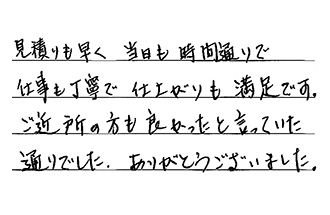 見積りも早く 当日も時間通りで
仕事も丁寧で 仕上がりも 満足です。
ご近所の方も良かったと言っていた
通りでした. ありがとうございました。